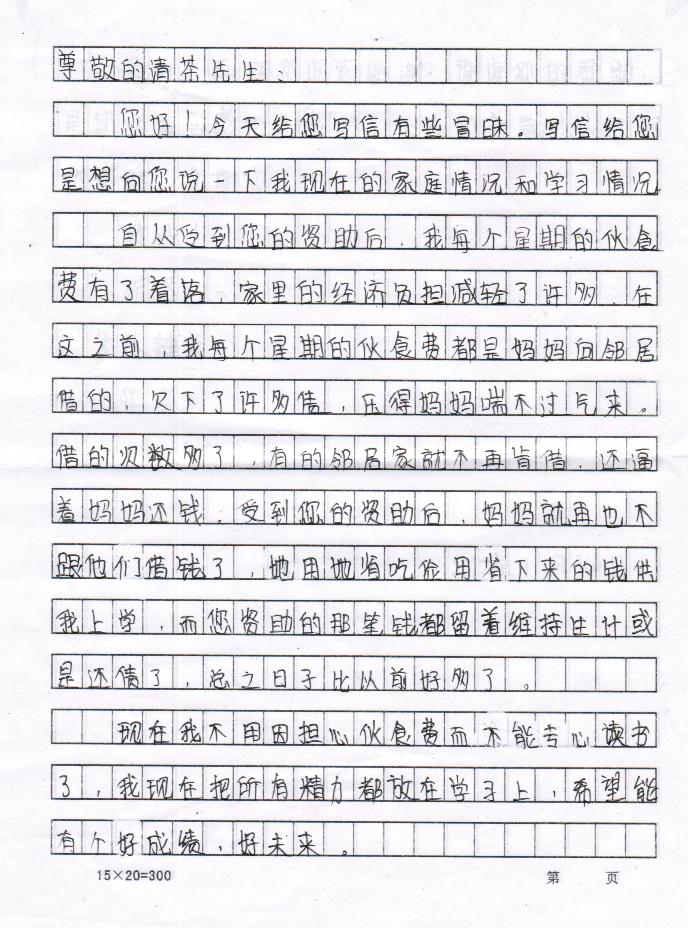 尊敬的清茶先生：
您好！今天给您写信有些冒昧。写信给您
是想向您说一下我现在的家庭情况和学习情况
自从受到您的资助后，我每个星期的伙食
费有了着落，家里的经济负担减轻了许多，在
这之前，我每个星期的伙食费都是妈妈向邻居
借的，欠下了许多债，压得妈妈喘不过气来。
借的次数多了，有的邻居家就不再肯借，还逼
着妈妈还钱，受到您的资助后，妈妈就再也不
跟他们借钱了，她用她省吃俭用省下来的钱供
我上学，而您资助的那笔钱都留着维持生计或
是还债了，总之日子比以前好多了。
现在我不用因担心伙食费而不能专心读书
了，我现在把所有精力都放在学习上，希望能
有个好成绩，好未来。
15×20=300 第 页